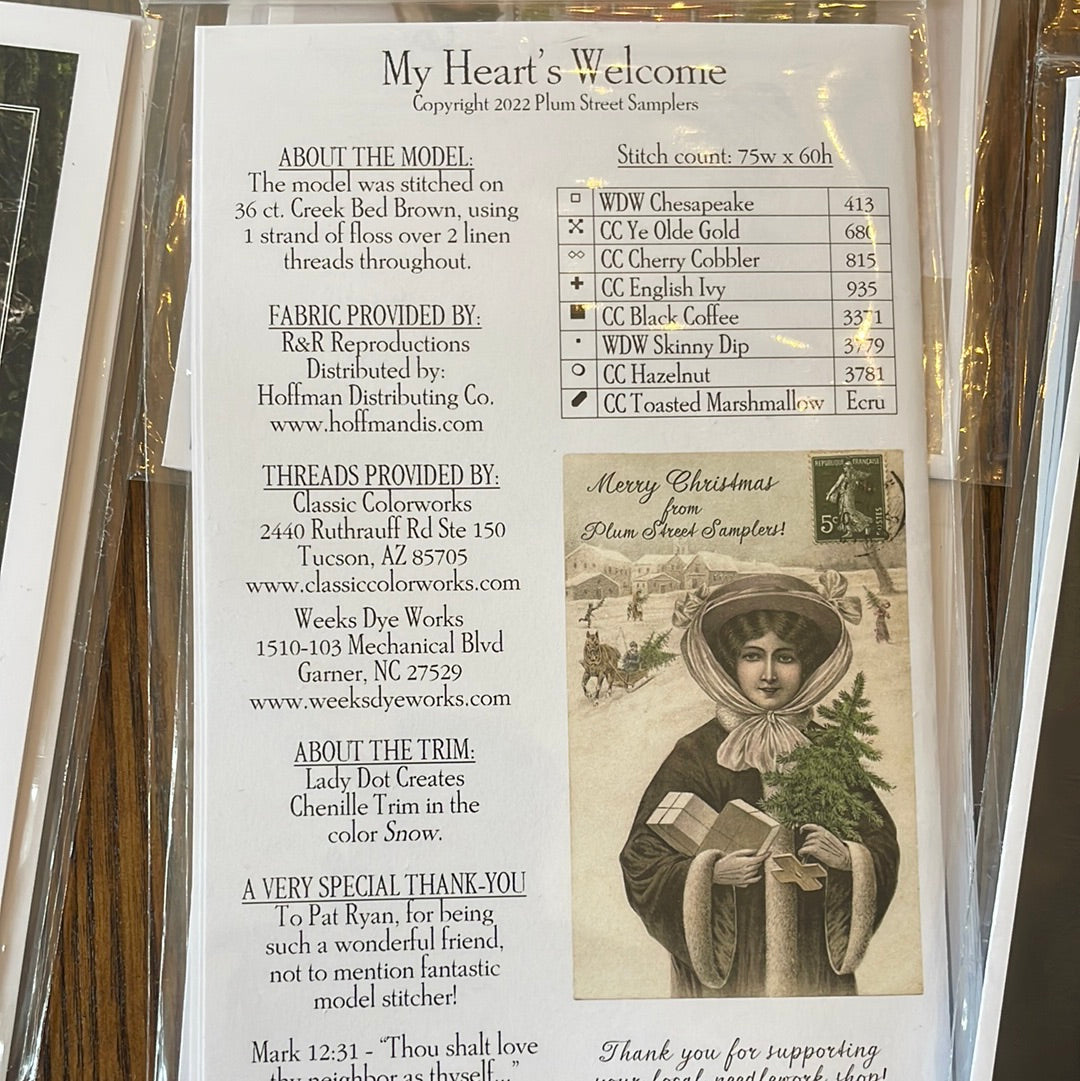 My Heart's Welcome
Copyright 2022 Plum Street Samplers
ABOUT THE MODEL:
The model was stitched on
36 ct. Creek Bed Brown, using
1 strand of floss over 2 linen
threads throughout.
FABRIC PROVIDED BY:
R&R Reproductions
Distributed by:
Hoffman Distributing Co.
www.hoffmandis.com
THREADS PROVIDED BY:
Classic Colorworks
2440 Ruthrauff Rd Ste 150
Tucson, AZ 85705
www.classiccolorworks.com
Weeks Dye Works
1510-103 Mechanical Blvd
Garner, NC 27529
www.weeksdyeworks.com
ABOUT THE TRIM:
Lady Dot Creates
Chenille Trim in the
color Snow.
A VERY SPECIAL THANK-YOU
To Pat Ryan, for being
such a wonderful friend,
not to mention fantastic
model stitcher!
Mark 12:31 - "Thou shalt love
thy neighbor as thyself..."
Stitch count: 75w x 60h
WDW Chesapeake 413
CC Ye Olde Gold 680
CC Cherry Cobbler 815
CC English Ivy 935
CC Black Coffee 3371
WDW Skinny Dip 3779
CC Hazelnut 3781
CC Toasted Marshmallow Ecru
Merry Christmas
from
Plum Street Samplers!
REPUBLIQUE FRANÇAISE
5c
POSTES
Thank you for supporting
your local needlework shop!